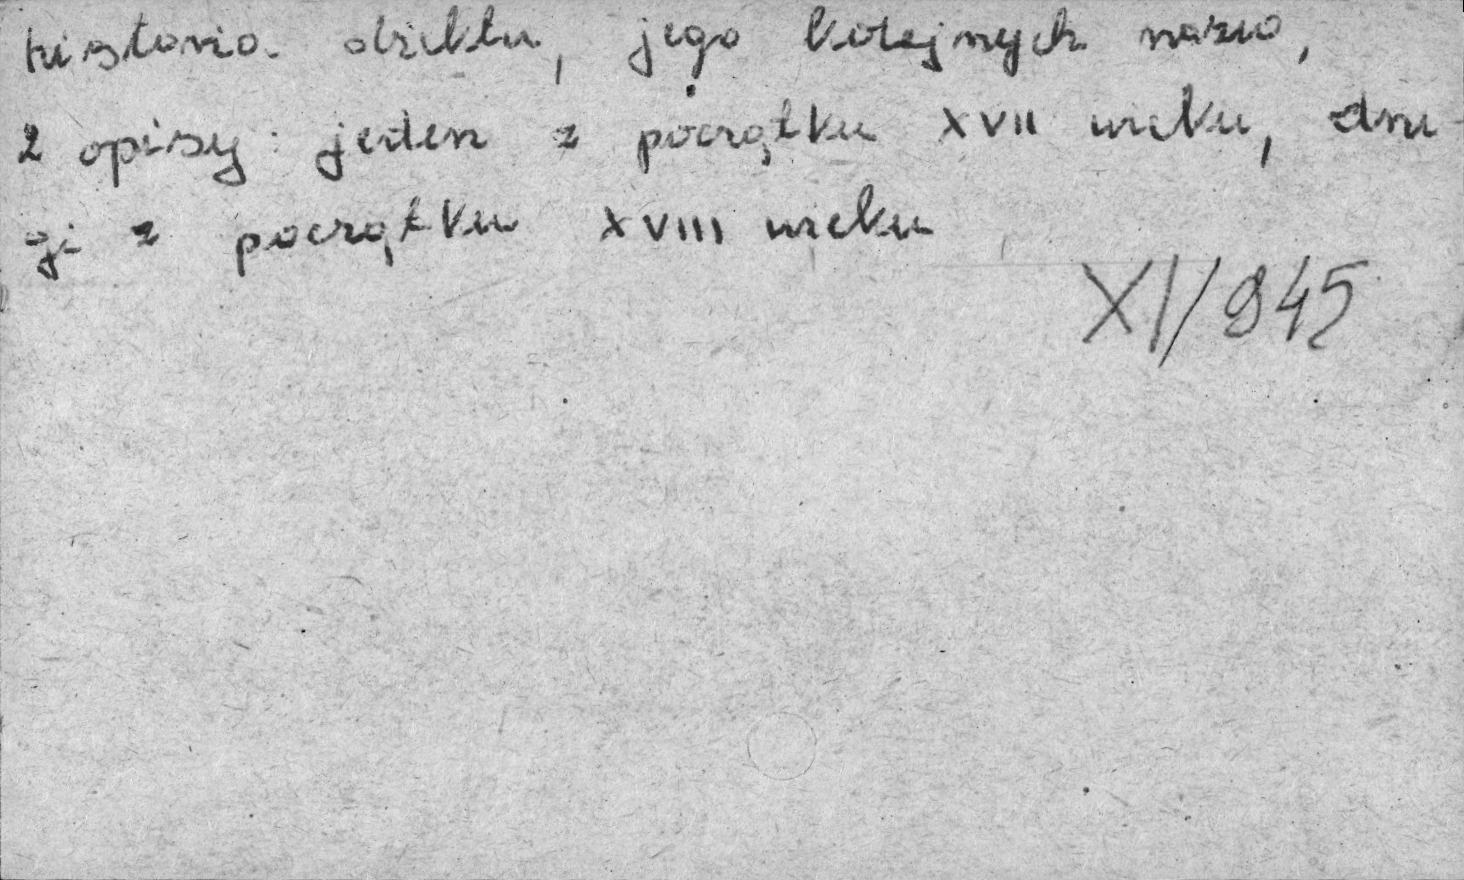 historia obiektu, jego kolejnych nazw,
2 opisy: jeden z początku XVII wieku, dru-
gi z początku XVIII wieku
XI/945